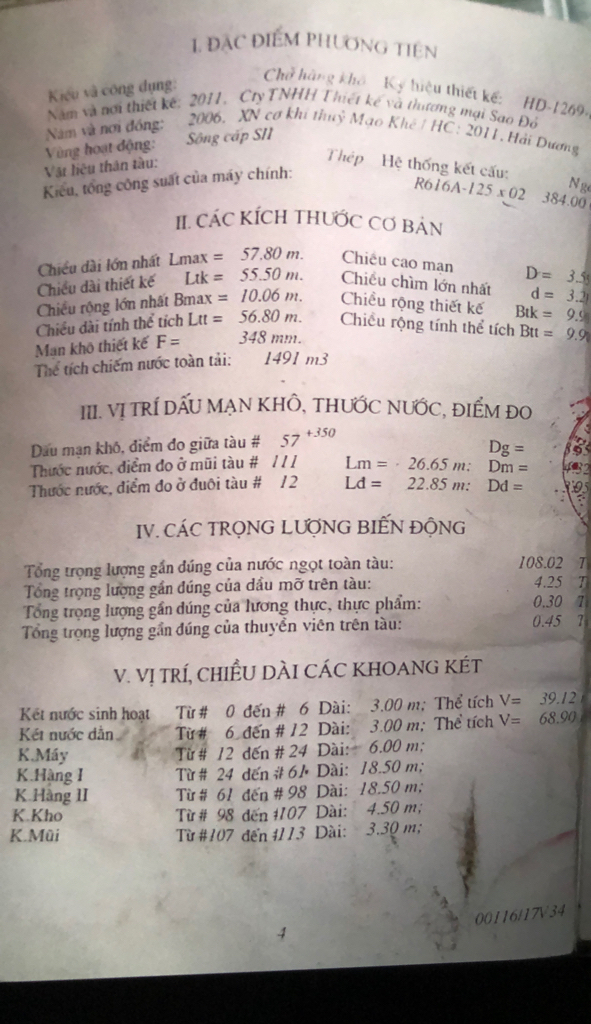 I. ĐẶC ĐIỂM PHƯƠNG TIỆN
Kiểu và công dụng: Chở hàng khô Ký hiệu thiết kế: HD-1269-
Năm và nơi thiết kế: 2011, Cty TNHH Thiết kế và thương mại Sao Đỏ
Năm và nơi đóng: 2006, XN cơ khí thuỷ Mạo Khê / HC: 2011, Hải Dương
Vùng hoạt động: Sông cấp SII
Vật liệu thân tàu: Thép Hệ thống kết cấu:
Kiểu, tổng công suất của máy chính: R616A-125 x 02 384.00
II. CÁC KÍCH THƯỚC CƠ BẢN
Chiều dài lớn nhất Lmax = 57.80 m. Chiều cao mạn D = 3.5
Chiều dài thiết kế Ltk = 55.50 m. Chiều chìm lớn nhất d = 3.2
Chiều rộng lớn nhất Bmax = 10.06 m. Chiều rộng thiết kế Btk = 9.9
Chiều dài tính thể tích Ltt = 56.80 m. Chiều rộng tính thể tích Btt = 9.9
Mạn khô thiết kế F = 348 mm.
Thể tích chiếm nước toàn tải: 1491 m3
III. VỊ TRÍ DẤU MẠN KHÔ, THƯỚC NƯỚC, ĐIỂM ĐO
Dấu mạn khô, điểm đo giữa tàu # 57 +350 Dg =
Thước nước, điểm đo ở mũi tàu # 111 Lm = 26.65 m: Dm =
Thước nước, điểm đo ở đuôi tàu # 12 Lđ = 22.85 m: Dđ =
IV. CÁC TRỌNG LƯỢNG BIẾN ĐỘNG
Tổng trọng lượng gần đúng của nước ngọt toàn tàu: 108.02 T
Tổng trọng lượng gần đúng của dầu mỡ trên tàu: 4.25 T
Tổng trọng lượng gần đúng của lương thực, thực phẩm: 0.30 T
Tổng trọng lượng gần đúng của thuyền viên trên tàu: 0.45 T
V. VỊ TRÍ, CHIỀU DÀI CÁC KHOANG KÉT
Két nước sinh hoạt Từ # 0 đến # 6 Dài: 3.00 m; Thể tích V= 39.12
Két nước dằn Từ # 6 đến # 12 Dài: 3.00 m; Thể tích V= 68.90
K.Máy Từ # 12 đến # 24 Dài: 6.00 m;
K.Hàng I Từ # 24 đến # 61 Dài: 18.50 m;
K.Hàng II Từ # 61 đến # 98 Dài: 18.50 m;
K.Kho Từ # 98 đến #107 Dài: 4.50 m;
K.Mũi Từ #107 đến #113 Dài: 3.30 m;
00116/17V34
4